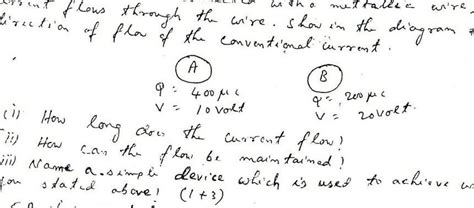 flows through the wire. Show in the diagram
direction of flow of the conventional current.
A B
Q = 400 μc Q = 200 μc
V = 10 volt V = 20 volt.
(i) How long does the current flow?
ii) How can the flow be maintained?
iii) Name a simple device which is used to achieve
you stated above! (1+3)